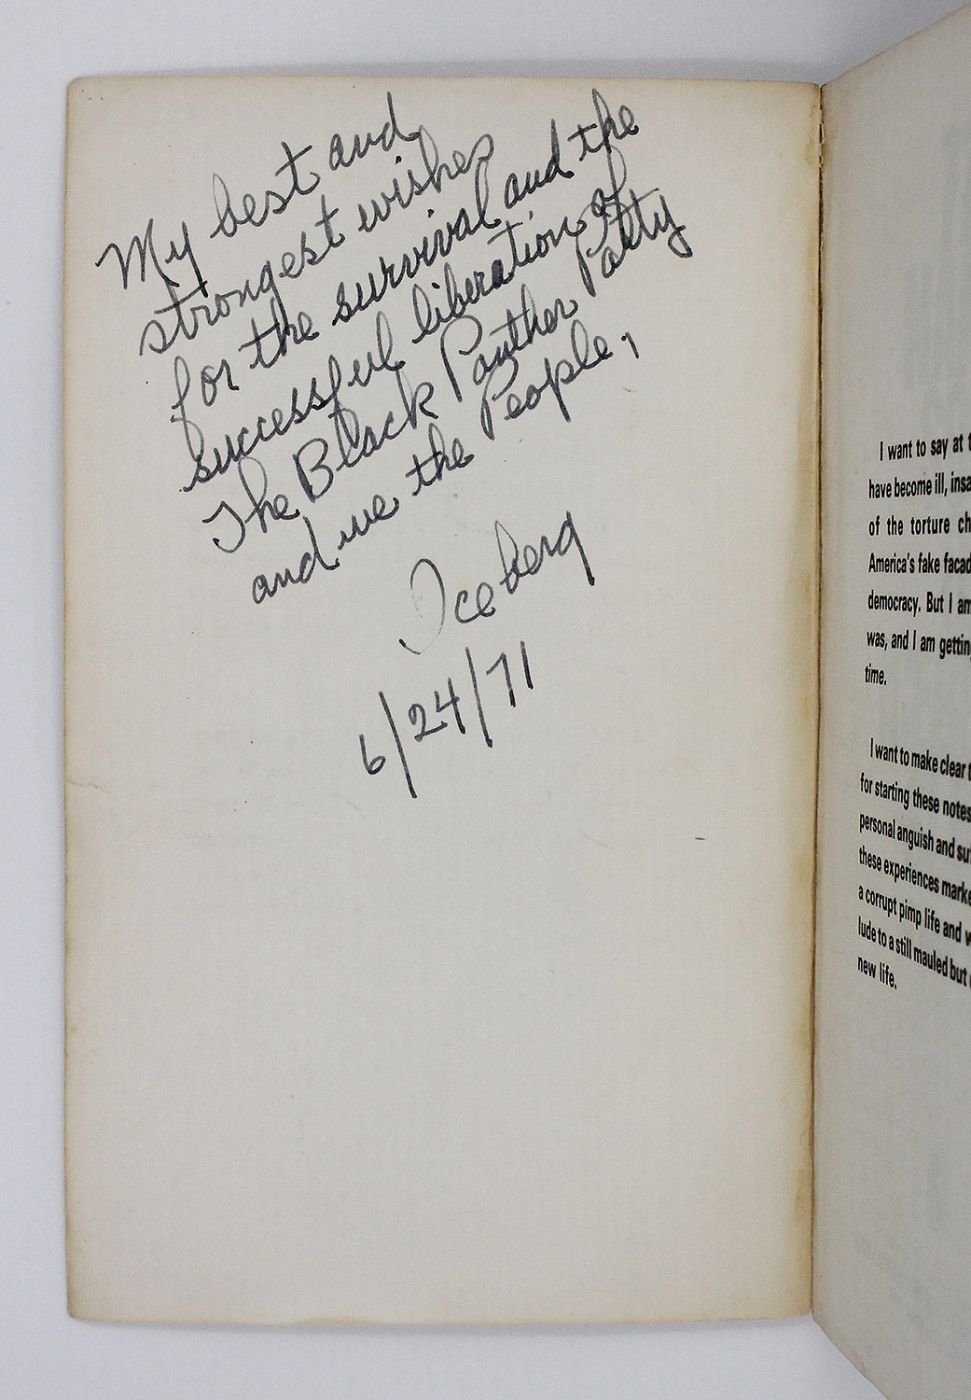 My best and
strongest wishes
for the survival and the
successful liberation of
The Black Panther Patty
and we the People,
Iceberg
6/24/71
I want to say at
have become ill, insa
of the torture ch
America's fake facad
democracy. But I am
was, and I am gettin
time.
I want to make clear
for starting these notes
personal anguish and suf
these experiences marke
a corrupt pimp life and
lude to a still mauled but
new life.